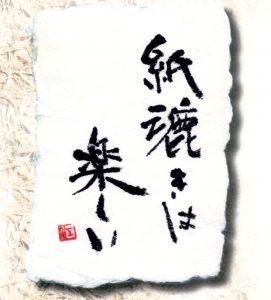 紙漉きは
楽しい